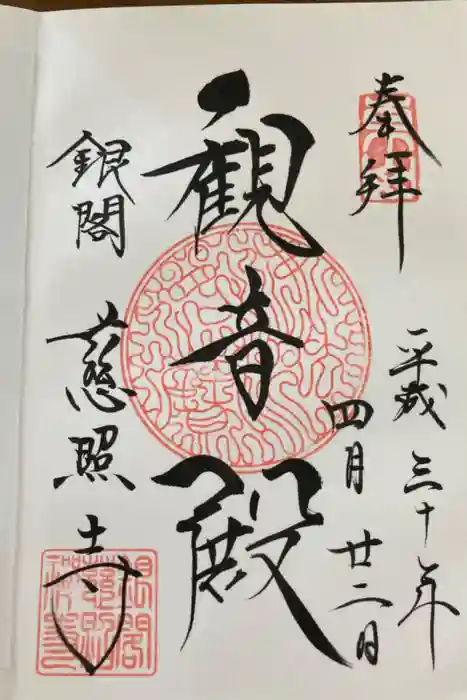 奉拝
平成三十年
四月廿二日
観音殿
銀閣 慈照寺